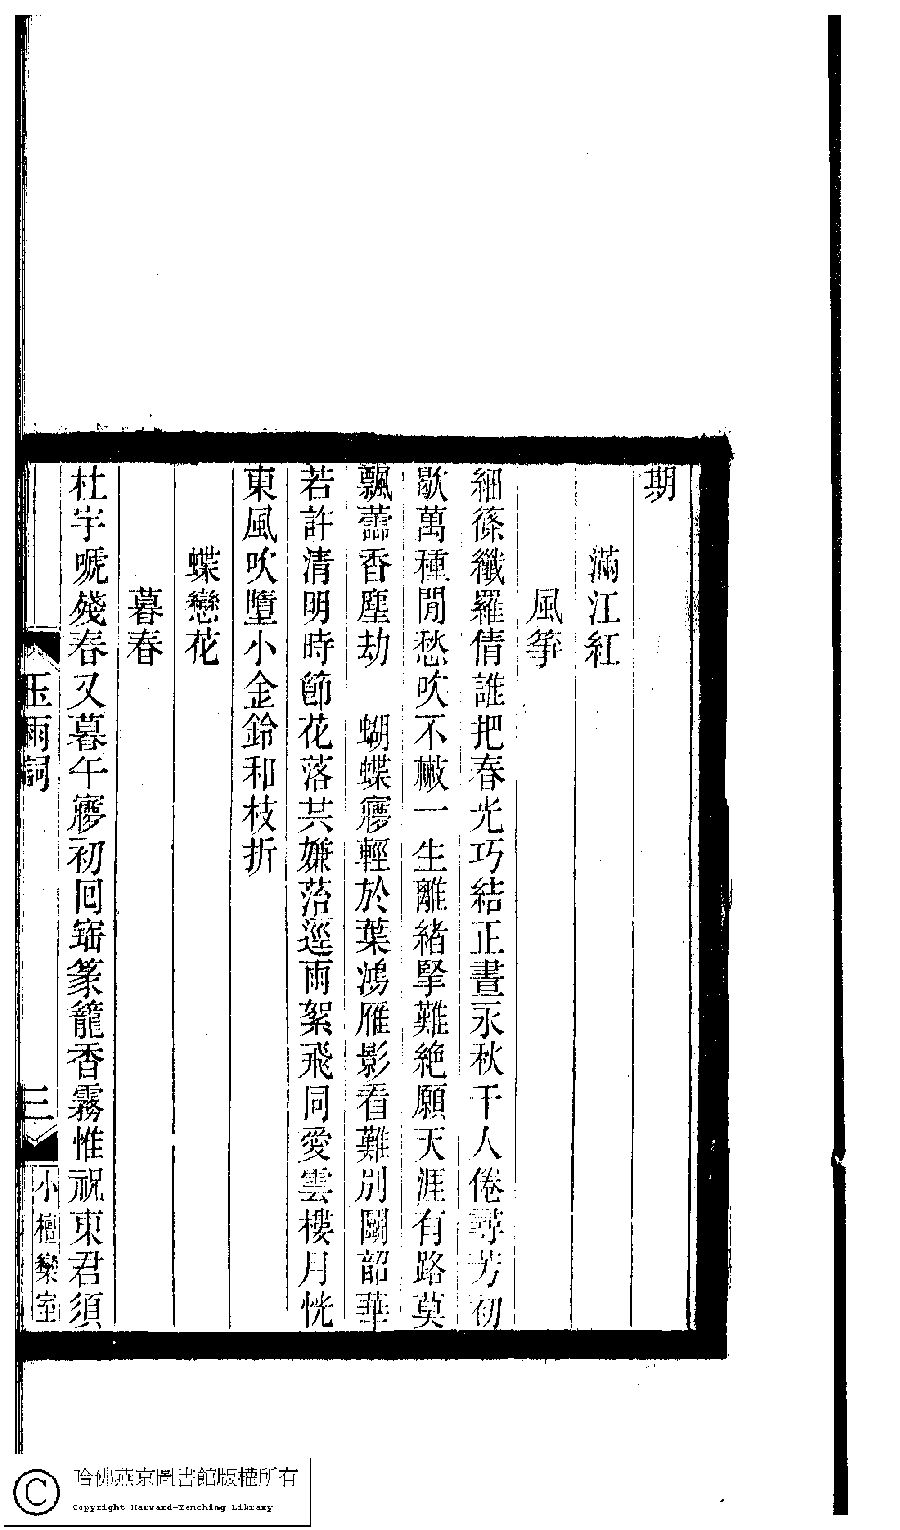 期
滿江紅
風箏
細篠纖羅倩誰把春光巧結正晝永秋千人倦尋芳初
歇萬種閒愁吹不㪚一生離緒擎難絶願天涯有路莫
飄蘦香塵劫　蝴蝶㝱輕於葉鴻雁影看難別鬭韶華
若許清明時節花落共嫌落逕雨絮飛同愛雲樓月恍
東風吹墮小金鈴和枝折
蝶戀花
暮春
杜宇嗁殘春又暮午㝱初回寶篆籠香霧惟祝東君須
玉雨詞
三
小檀欒室
哈佛燕京圖書館版權所有
Copyright Harvard-Yenching Library